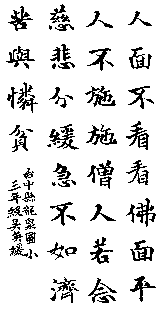 人面不看看佛面平
人不施施僧人若念
慈悲分緩急不如濟
苦與憐貧
台中縣龍泉國小
三年級吳英璇